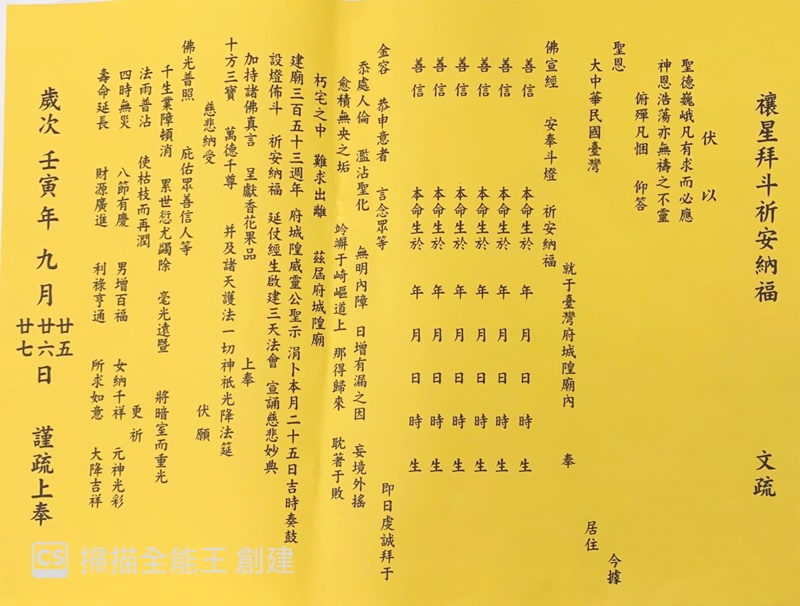 禳星拜斗祈安納福 文疏
伏以
聖德巍峨凡有求而必應
神恩浩蕩亦無禱之不靈
俯殫凡悃 仰答
聖恩 今據
大中華民國臺灣 居住
就于臺灣府城隍廟內 奉
佛宣經 安奉斗燈 祈安納福
善信 本命生於 年 月 日 時 生
善信 本命生於 年 月 日 時 生
善信 本命生於 年 月 日 時 生
善信 本命生於 年 月 日 時 生
善信 本命生於 年 月 日 時 生
善信 本命生於 年 月 日 時 生
即日虔誠拜于
金容 恭申意者 言念眾等
忝處人倫 濫沾聖化 無明內障 日增有漏之因 妄境外搖
愈積無央之垢 竛竮于崎嶇道上 那得歸來 耽著于敗
朽宅之中 難求出離 茲届府城隍廟
建廟三百五十三週年 府城隍威靈公聖示 涓卜本月二十五日吉時奏鼓
設燈佈斗 祈安納福 延仗經生啟建三天法會 宣誦慈悲妙典
加持諸佛真言 呈獻香花果品 上奉
十方三寶 萬德千尊 并及諸天護法一切神祇光降法筵
慈悲納受 伏願
佛光普照 庇佑眾善信人等
千生業障頓消 累世愆尤蠲除 毫光遠暨 將暗室而重光
法雨普沾 使枯枝而再潤 更祈
四時無災 八節有慶 男增百福 女納千祥 元神光彩
壽命延長 財源廣進 利祿亨通 所求如意 大降吉祥
歲次 壬寅年 九月 廿五 廿六 廿七 日 謹疏上奉
CS 掃描全能王 創建